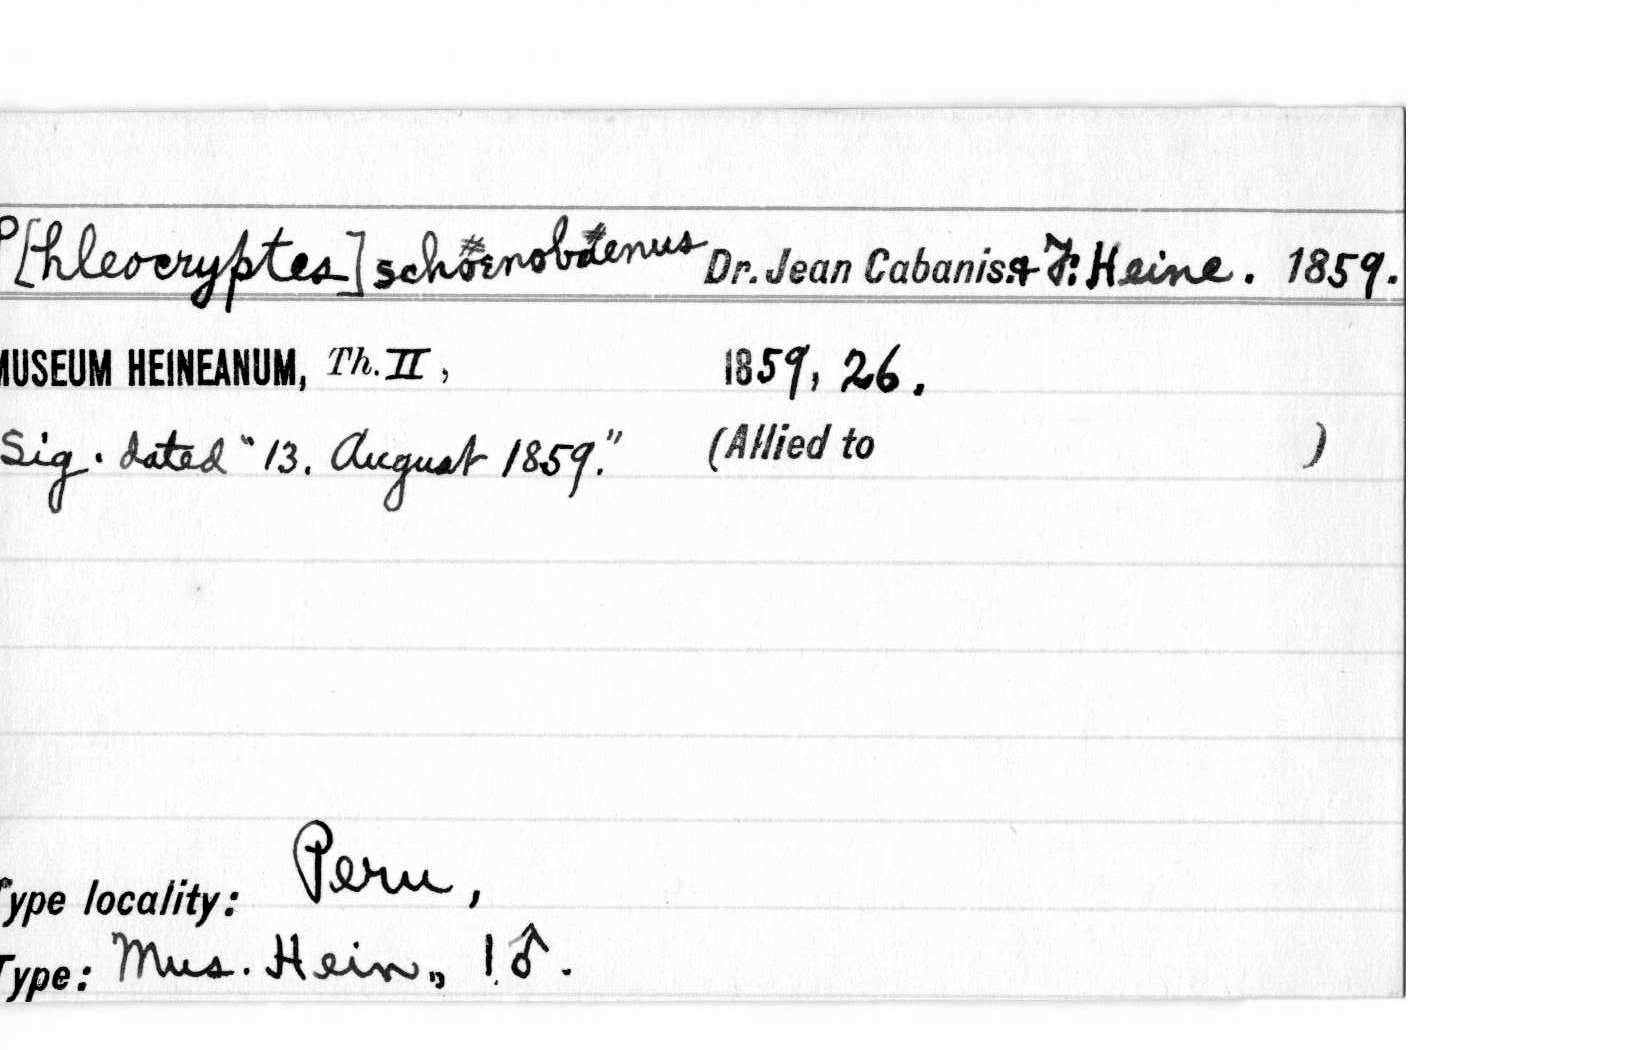 P[hleocryptes] schoenobaenus Dr. Jean Cabanis. & F. Heine. 1859.
MUSEUM HEINEANUM, Th. II, 1859, 26.
Sig. dated "13. August 1859." (Allied to )
Type locality: Peru,
Type: Mus. Hein., 1♂.